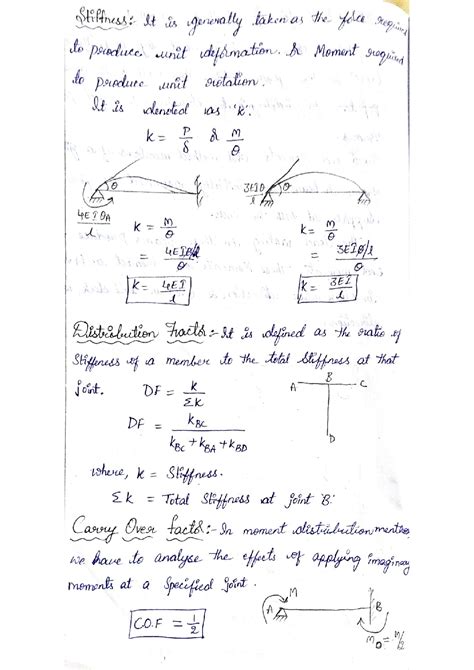 Stiffness:- It is generally taken as the force required
to produce unit deformation. & Moment required
to produce unit rotation.
It is denoted as 'k'.
k = P/δ & M/θ
θ
4EIθA/l
k = M/θ
= 4EIθ/l / θ
k = 4EI/l
3EIθ/l
θ
k = M/θ
= 3EIθ/l / θ
k = 3EI/l
Distribution Factor:- It is defined as the ratio of
Stiffness of a member to the total Stiffness at that
joint. DF = k/Σk
A B C
D
DF = kBC / kBC + kBA + kBD
where, k = Stiffness.
Σk = Total Stiffness at joint 'B'.
Carry Over Factor:- In moment distribution
we have to analyse the effects of applying imaginary
moments at a Specified joint.
C.O.F = 1/2
A M B